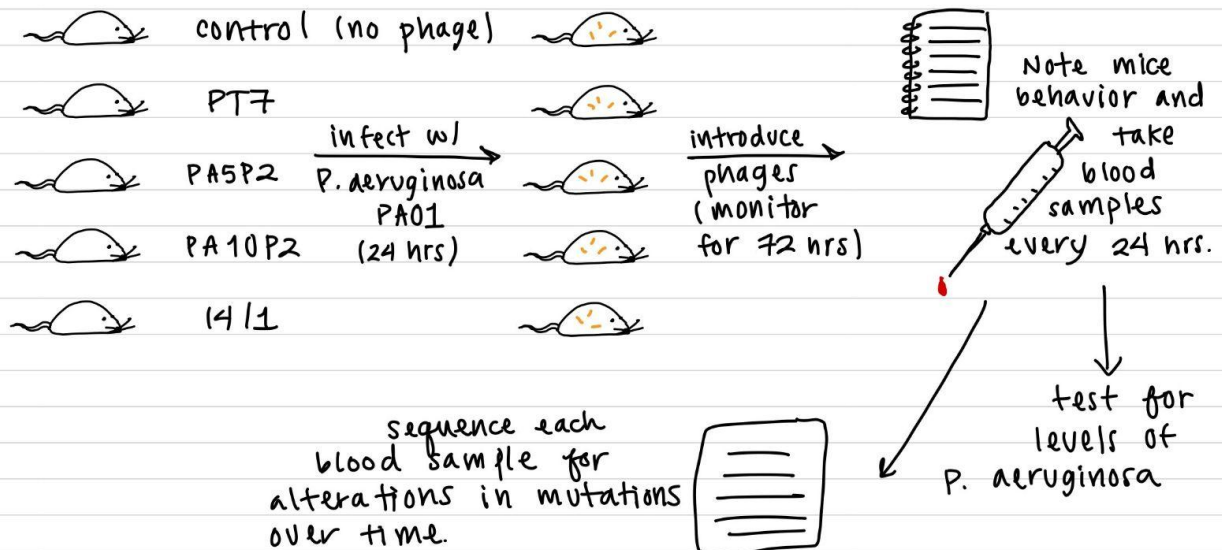 control (no phage)
PT7
PA5P2
PA10P2
14/1
infect w/
P. aeruginosa
PA01
(24 hrs)
introduce
phages
(monitor
for 72 hrs)
Note mice
behavior and
take
blood
samples
every 24 hrs.
test for
levels of
P. aeruginosa
sequence each
blood sample for
alterations in mutations
over time.